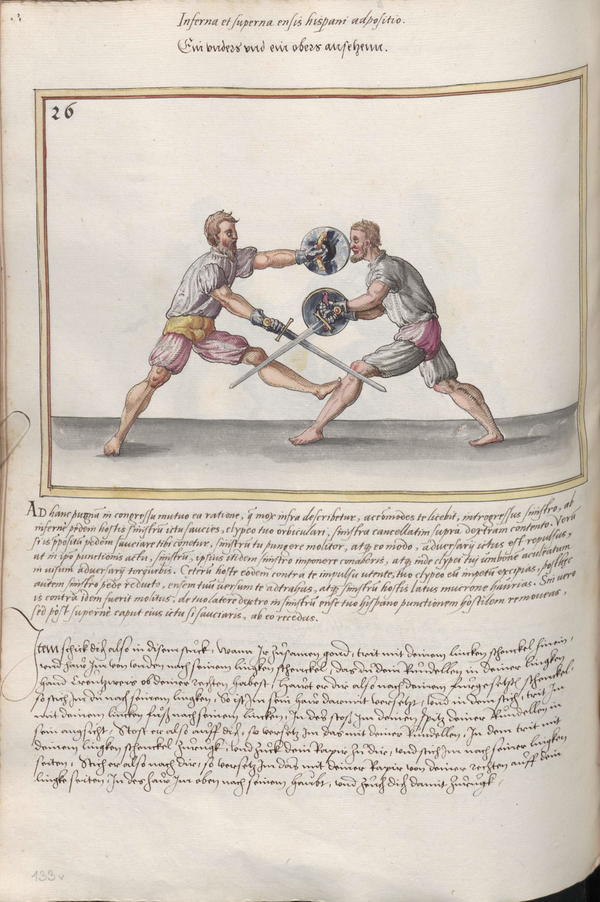 Inferna et superna ensis hispani adpositio.
Ein unders und ein obers ansetzenn.
26
AD hanc pugnã in congressu mutuo ea ratione, q̃ mox infra describetur, accõmodes te licebit, introgressus sinistro, ab
inferne pedem hostis sinistrũ ictu saucies, clypeo tuo orbiculari, sinistra cancellatim supra dextram contento. Verũ
si is oppositũ pedem sauciare tibi conetur, sinistrũ tu pungere molitor, atq̃ eo modo, adversarij ictus est repulsus,
at in ipso punctionis actu, sinistrũ, ipsius itidem sinistro imponere conaberis, atq̃ inde clypei tui umbone aculeatum
in visum adversarij torquebis. Ceterũ hoste eodem contra te impulsu utente, tuo clypeo eũ impetũ excipias, posthæc
autem sinistro pede reducto, ensem tuũ versum te adtrahas, atq̃ sinistrũ hostis latus mucrone haurias. Sin vero
is contra idem fuerit molitus, de tuo latere dextro in sinistrũ ense tuo hispano punctionem hostilem removeas,
sed post superne caput eius ictu si sauciaris, ab eo recedas.
Item schick dich also in disem stuck, Wann Ir zusamen gond, trit mit deinem lincken schenckel hinein,
und haw Im von unden nach seinem lingken schenckel, das du dein Rundellen in deiner lingken
hand Creutzweis ob deiner rechten habest, Hawt er dir also nach deinem fürgesetzt schenckel,
so stich Im du nach seinem lingken, So ist Im sein haw darmit versetzt, und in dem stich, trit Im
mit deinem lincken fuß nach seinem lincken, In des stos Im deinen spitz deiner Rundellen in
sein angesicht, Stost er also auff dich, so versetz Im das mit deiner Rundellen, In dem trit mit
deinem lingken schenckel zurugk, und zuck dein Rapir zu dir, und stich Im nach seiner lingken
seiten, Sticht er also nach dir, so versetz Im das mit deiner Rapir von deiner rechten auff dein
lingke seiten, In des haw Im oben nach seinem haubt, und zeuch dich damit zurugk.
133v